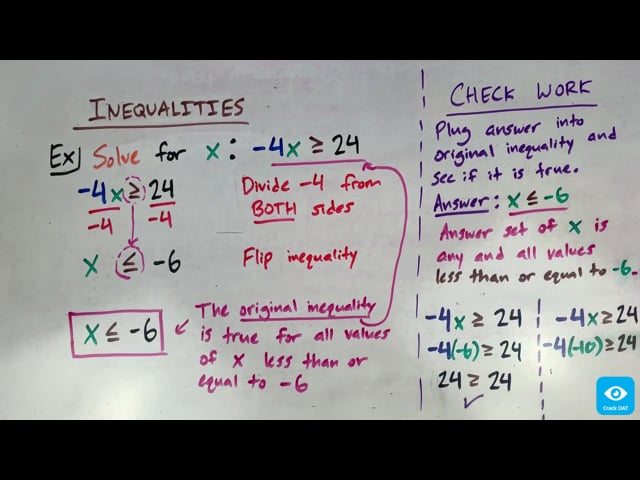 INEQUALITIES
Ex) Solve for x : -4x ≥ 24
-4x ≥ 24
-4 -4
x ≤ -6
Divide -4 from
BOTH sides
Flip inequality
x ≤ -6
The original inequality
is true for all values
of x less than or
equal to -6
CHECK WORK
Plug answer into
original inequality and
see if it is true.
Answer: x ≤ -6
Answer set of x is
any and all values
less than or equal to -6.
-4x ≥ 24
-4(-6) ≥ 24
24 ≥ 24
✓
-4x ≥ 24
-4(-10) ≥ 24
Crack OAT